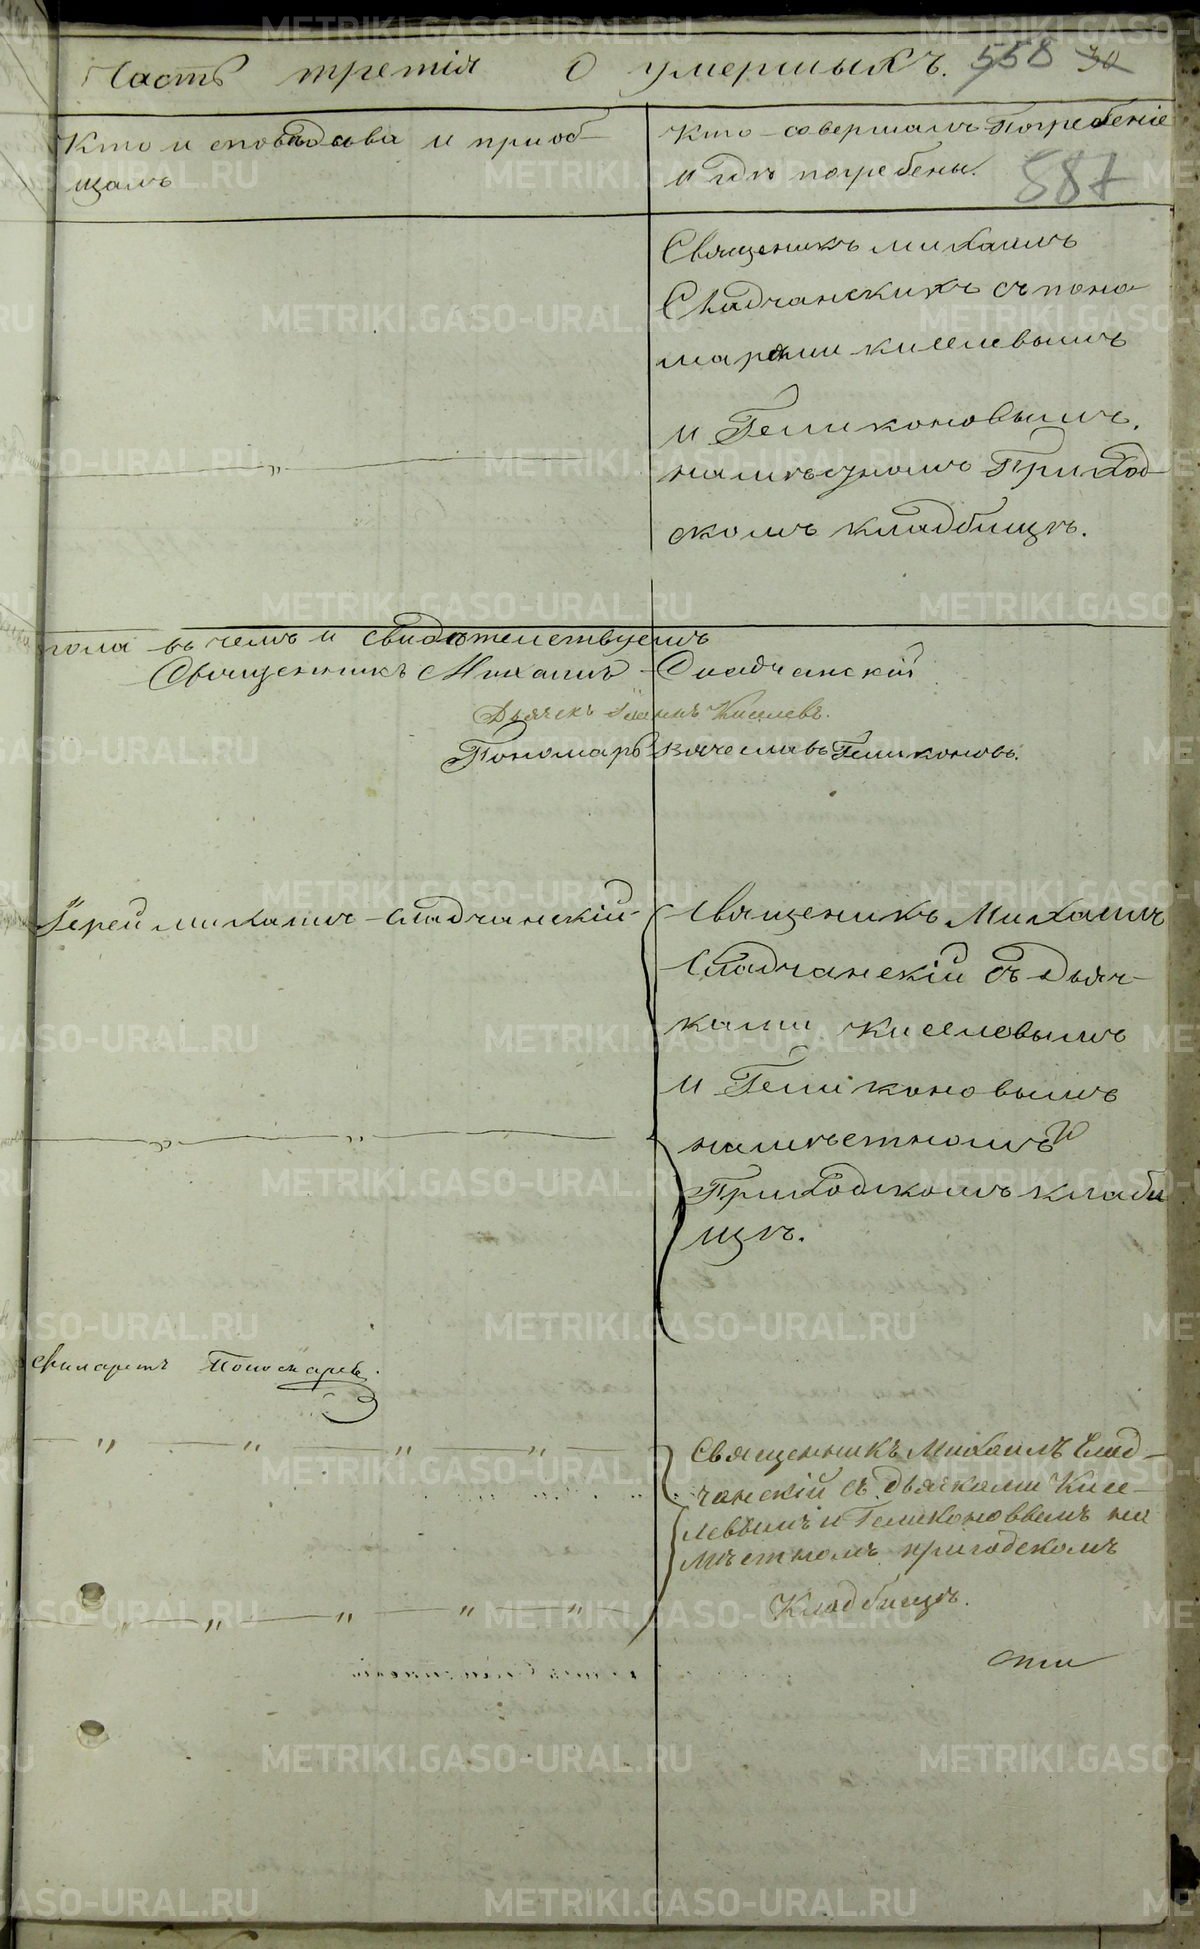 Часть третія о умершыхъ. 558 30
Кто исповѣдовал и приоб-
щалъ
Кто совершалъ Погребеніе
и гдѣ погребены.
587
Священикъ михаилъ
Сладчанскихъ съ поно-
марями киселевымъ
и Геликоновымъ.
намѣсномъ Приход-
скомъ кладбищѣ.
пола въ чемъ и свидѣтелствуемъ
Священникъ Михаилъ Сладчанскій
Дьячекъ Іоаннъ Киселевъ.
Пономарь Вячеславъ Геликоновъ.
Іерей михаилъ сладчанскій
Священикъ Михаилъ
Сладчанскій съ Дьяч-
ками киселевымъ
и Геликоновымъ
намѣстномъ
Приходскомъ кладби
щѣ.
Филаретъ Пономаревъ.
Священникъ Михаилъ Слад-
чанскій съ дьячками Кисе-
левымъ и Геликоновымъ на
мѣстномъ приходскомъ
Кладбищѣ.
METRIKI.GASO-URAL.RU